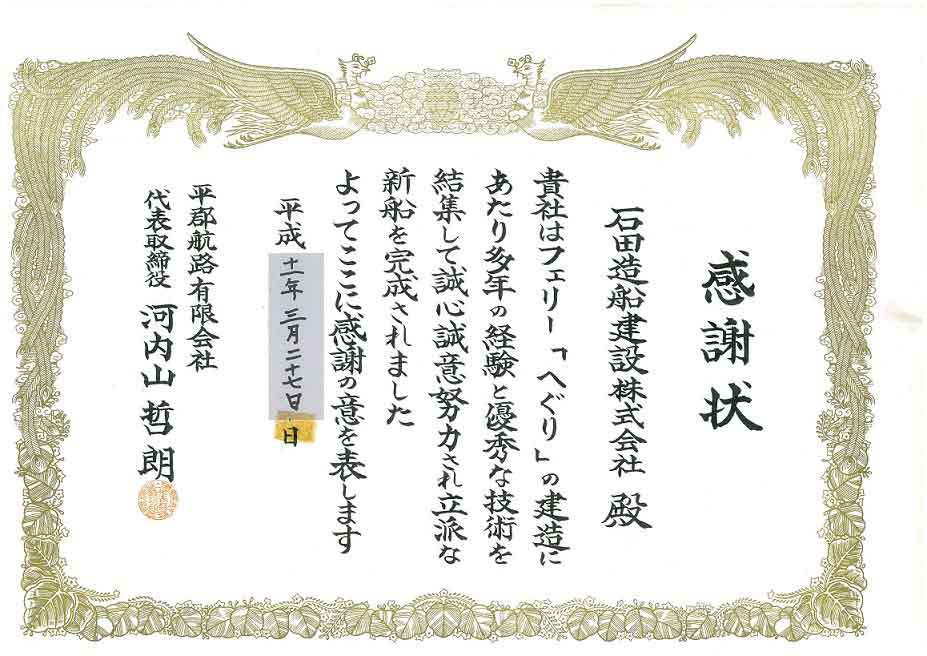 感謝状
石田造船建設株式会社 殿
貴社はフェリー「へぐり」の建造に
あたり多年の経験と優秀な技術を
結集して誠心誠意努力され立派な
新船を完成されました
よってここに感謝の意を表します
平成十一年三月二十七日日
平郡航路有限会社
代表取締役 河内山哲朗